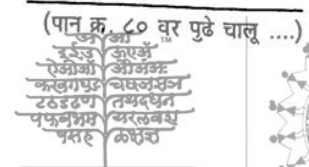 (पान क्र. ८० वर पुढे चालू ....)
अ आ
TM
इ ई उ ऊ ए ॲ
ऐ ओ ऑ औ अं अः
क ख ग घ ङ च छ ज झ ञ
ट ठ ड ढ ण त थ द ध न
प फ ब भ म य र ल व श
ष स ह ळ क्ष ज्ञ